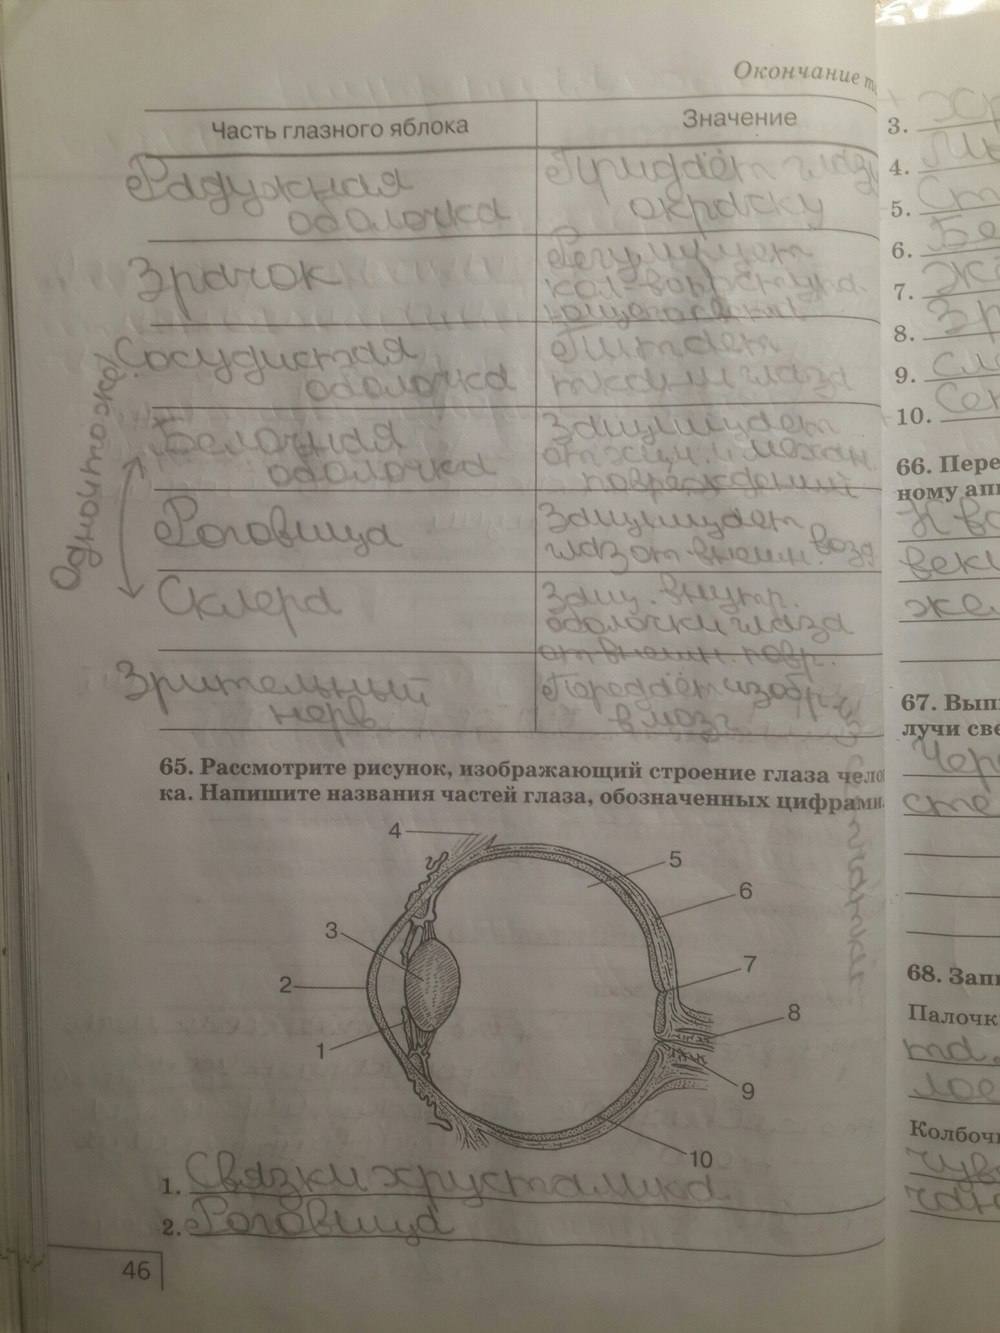 Окончание т
Часть глазного яблока
Значение
Радужная
оболочка
Придаёт глазу
окраску
Зрачок
Регулирует
Сосудистая
оболочка
Питает
ткани глаза
Белочная
оболочка
Защищает
от хим. и механ.
повреждений
Роговица
Защищает
глаз от внешн. возд
Склера
Защ. внутр.
оболочки глаза
от внешн. повр.
Зрительный
нерв
Передаёт изобр-е
в мозг
Одно и то же!
65. Рассмотрите рисунок, изображающий строение глаза чело
ка. Напишите названия частей глаза, обозначенных цифрами
4
5
6
3
7
2
8
1
9
10
1. Связки хрусталика
2. Роговица
46
3. Хр
4.
5. Ст
6. Бе
7.
8. Зр
9. Сл
10. Сет
66. Пере
ному апп
К в
веки
же
67. Вып
лучи све
Чер
сте
68. Запи
Палочк
Колбочк
чув